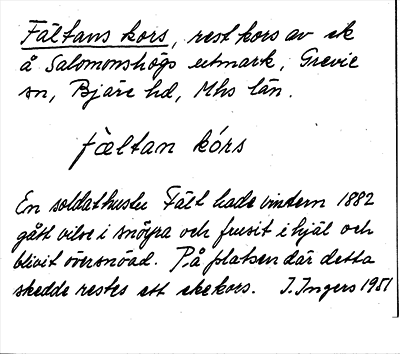 Fältans kors, rest kors av ek
å Salomonshögs utmark, Grevie
sn, Bjäre hd, Mhs län.
fæ̀ltan kórs
En soldathustru Fält hade vintern 1882
gått vilse i snöyra och frusit ihjäl och
blivit översnöad. På platsen där detta
skedde restes ett ekekors. I. Ingers 1951